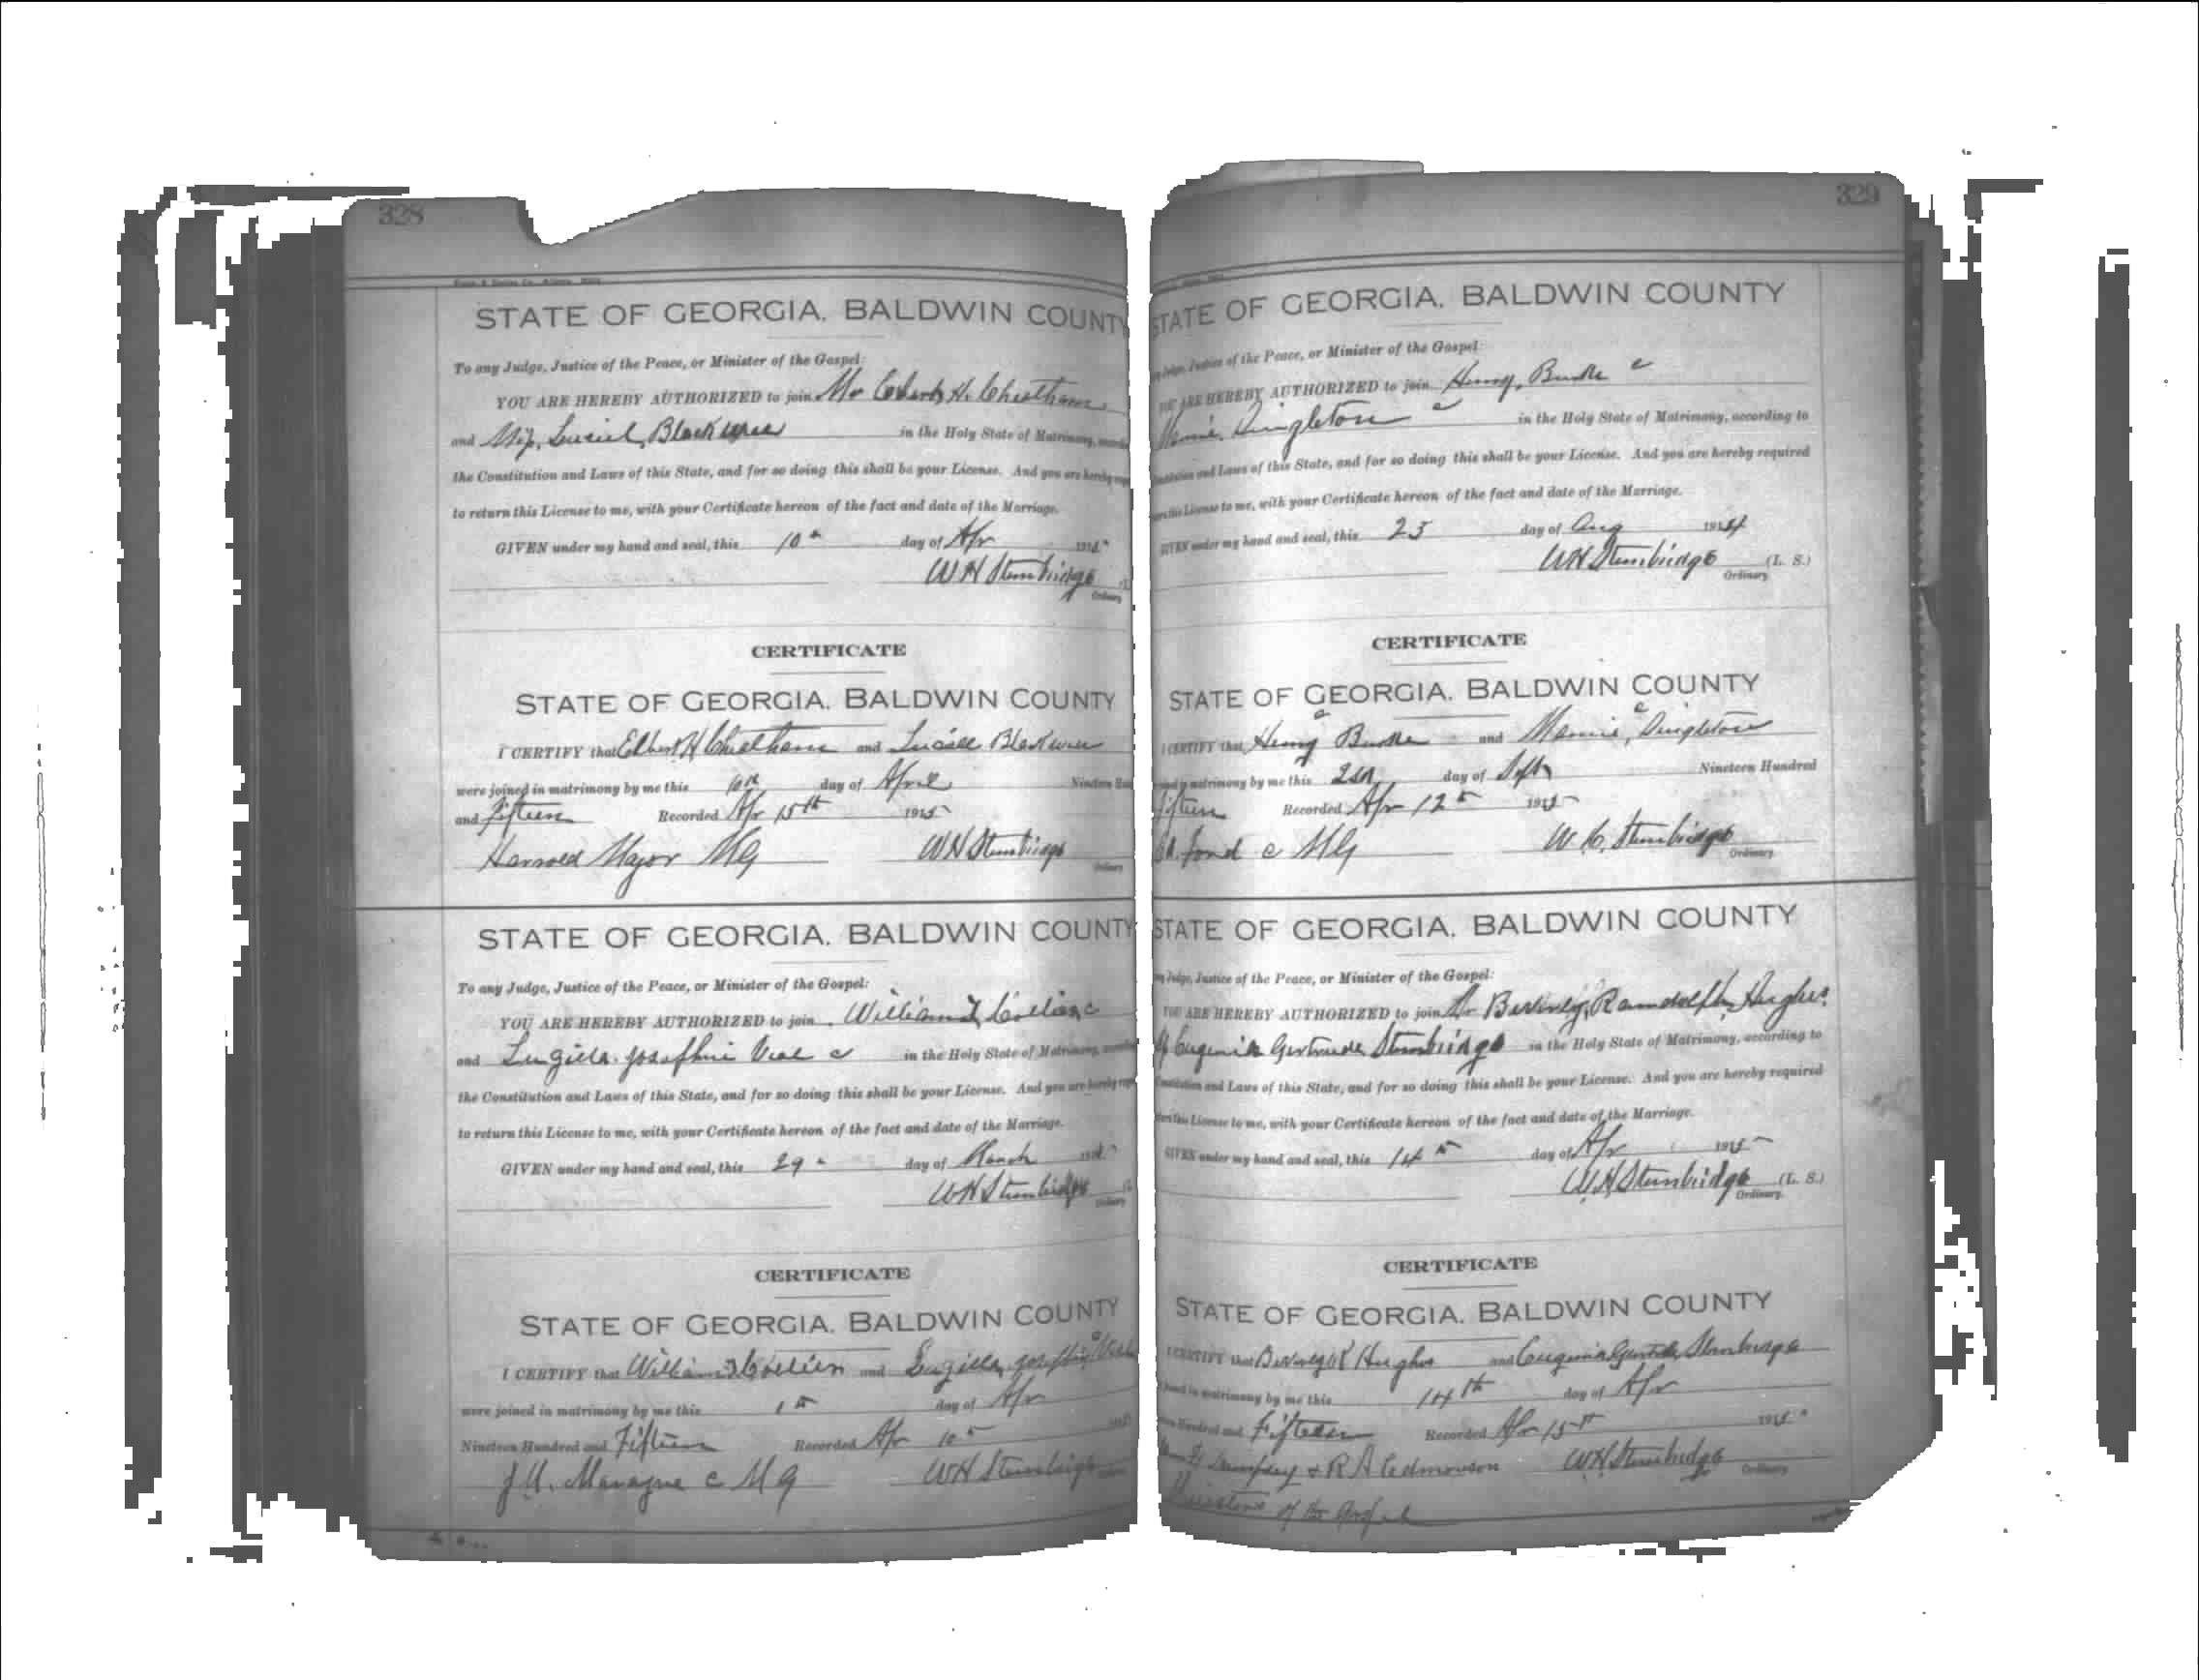 328
STATE OF GEORGIA. BALDWIN COUNTY
To any Judge, Justice of the Peace, or Minister of the Gospel:
YOU ARE HEREBY AUTHORIZED to join Mr H. Cheatham
and Miss in the Holy State of Matrimony,
the Constitution and Laws of this State, and for so doing this shall be your License. And you are hereby
to return this License to me, with your Certificate hereon of the fact and date of the Marriage.
GIVEN under my hand and seal, this 10th day of Apr 1915
W H Stembridge
Ordinary
CERTIFICATE
STATE OF GEORGIA. BALDWIN COUNTY
I CERTIFY that Elbert H Cheatham and Lucile
were joined in matrimony by me this 10th day of April Nineteen
and Fifteen Recorded Apr 15th 1915
Harrold Major MG W H Stembridge
Ordinary
STATE OF GEORGIA. BALDWIN COUNTY
To any Judge, Justice of the Peace, or Minister of the Gospel:
YOU ARE HEREBY AUTHORIZED to join William c
and Josephine Veal c in the Holy State of Matrimony,
the Constitution and Laws of this State, and for so doing this shall be your License. And you are hereby
to return this License to me, with your Certificate hereon of the fact and date of the Marriage.
GIVEN under my hand and seal, this 29 day of March
W H Stembridge
Ordinary
CERTIFICATE
STATE OF GEORGIA. BALDWIN COUNTY
I CERTIFY that William and
were joined in matrimony by me this 1st day of Apr
Nineteen Hundred and Fifteen Recorded Apr 10th
c M G W H Stembridge
329
STATE OF GEORGIA. BALDWIN COUNTY
Judge, Justice of the Peace, or Minister of the Gospel:
YOU ARE HEREBY AUTHORIZED to join Henry, c
c in the Holy State of Matrimony, according to
and Laws of this State, and for so doing this shall be your License. And you are hereby required
this License to me, with your Certificate hereon of the fact and date of the Marriage.
GIVEN under my hand and seal, this 25 day of Aug 1914
W H Stembridge (L. S.)
Ordinary
CERTIFICATE
STATE OF GEORGIA. BALDWIN COUNTY
I CERTIFY that Henry and
matrimony by me this day of Nineteen Hundred
fifteen Recorded Apr 12th 1915
c MG Stembridge
Ordinary
STATE OF GEORGIA. BALDWIN COUNTY
Judge, Justice of the Peace, or Minister of the Gospel:
YOU ARE HEREBY AUTHORIZED to join Mr Beverly Randolph Hughes
Eugenia Gertrude Stembridge in the Holy State of Matrimony, according to
and Laws of this State, and for so doing this shall be your License. And you are hereby required
this License to me, with your Certificate hereon of the fact and date of the Marriage.
GIVEN under my hand and seal, this 14th day of Apr 1915
W H Stembridge (L. S.)
Ordinary
CERTIFICATE
STATE OF GEORGIA. BALDWIN COUNTY
I CERTIFY that Beverly R Hughes and Eugenia Gertrude Stembridge
matrimony by me this 14th day of Apr
Hundred and Fifteen Recorded Apr 15th 1915
Dempsey & R A Edmondson W H Stembridge
Ordinary
Ministers of the Gospel